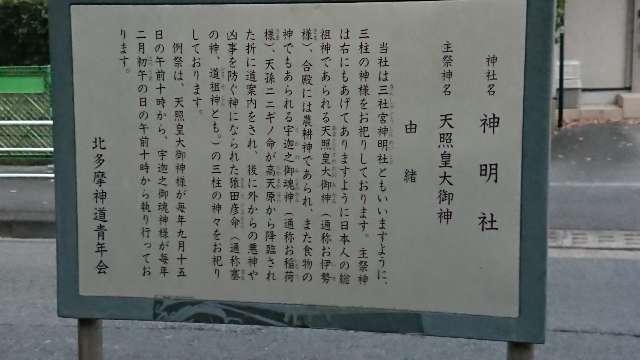 神社名 神明社
主祭神名 天照皇大御神
由緒
当社は三社宮神明社ともいいますように、
三柱の神様をお祀りしております。主祭神
は右にもあげてありますように日本人の総
祖神であられる天照皇大御神（通称お伊勢
様）、合殿には農耕神であられ、また食物の
神でもあられる宇迦之御魂神（通称お稲荷
様）、天孫ニニギノ命が高天原から降臨され
た折に道案内をされ、後に外からの悪神や
凶事を防ぐ神になられた猿田彦命（通称塞
の神、道祖神とも。）の三柱の神々をお祀り
しております。
例祭は、天照皇大御神様が毎年九月十五
日の午前十時から、宇迦之御魂神様が毎年
二月初午の日の午前十時から執り行ってお
ります。
北多摩神道青年会